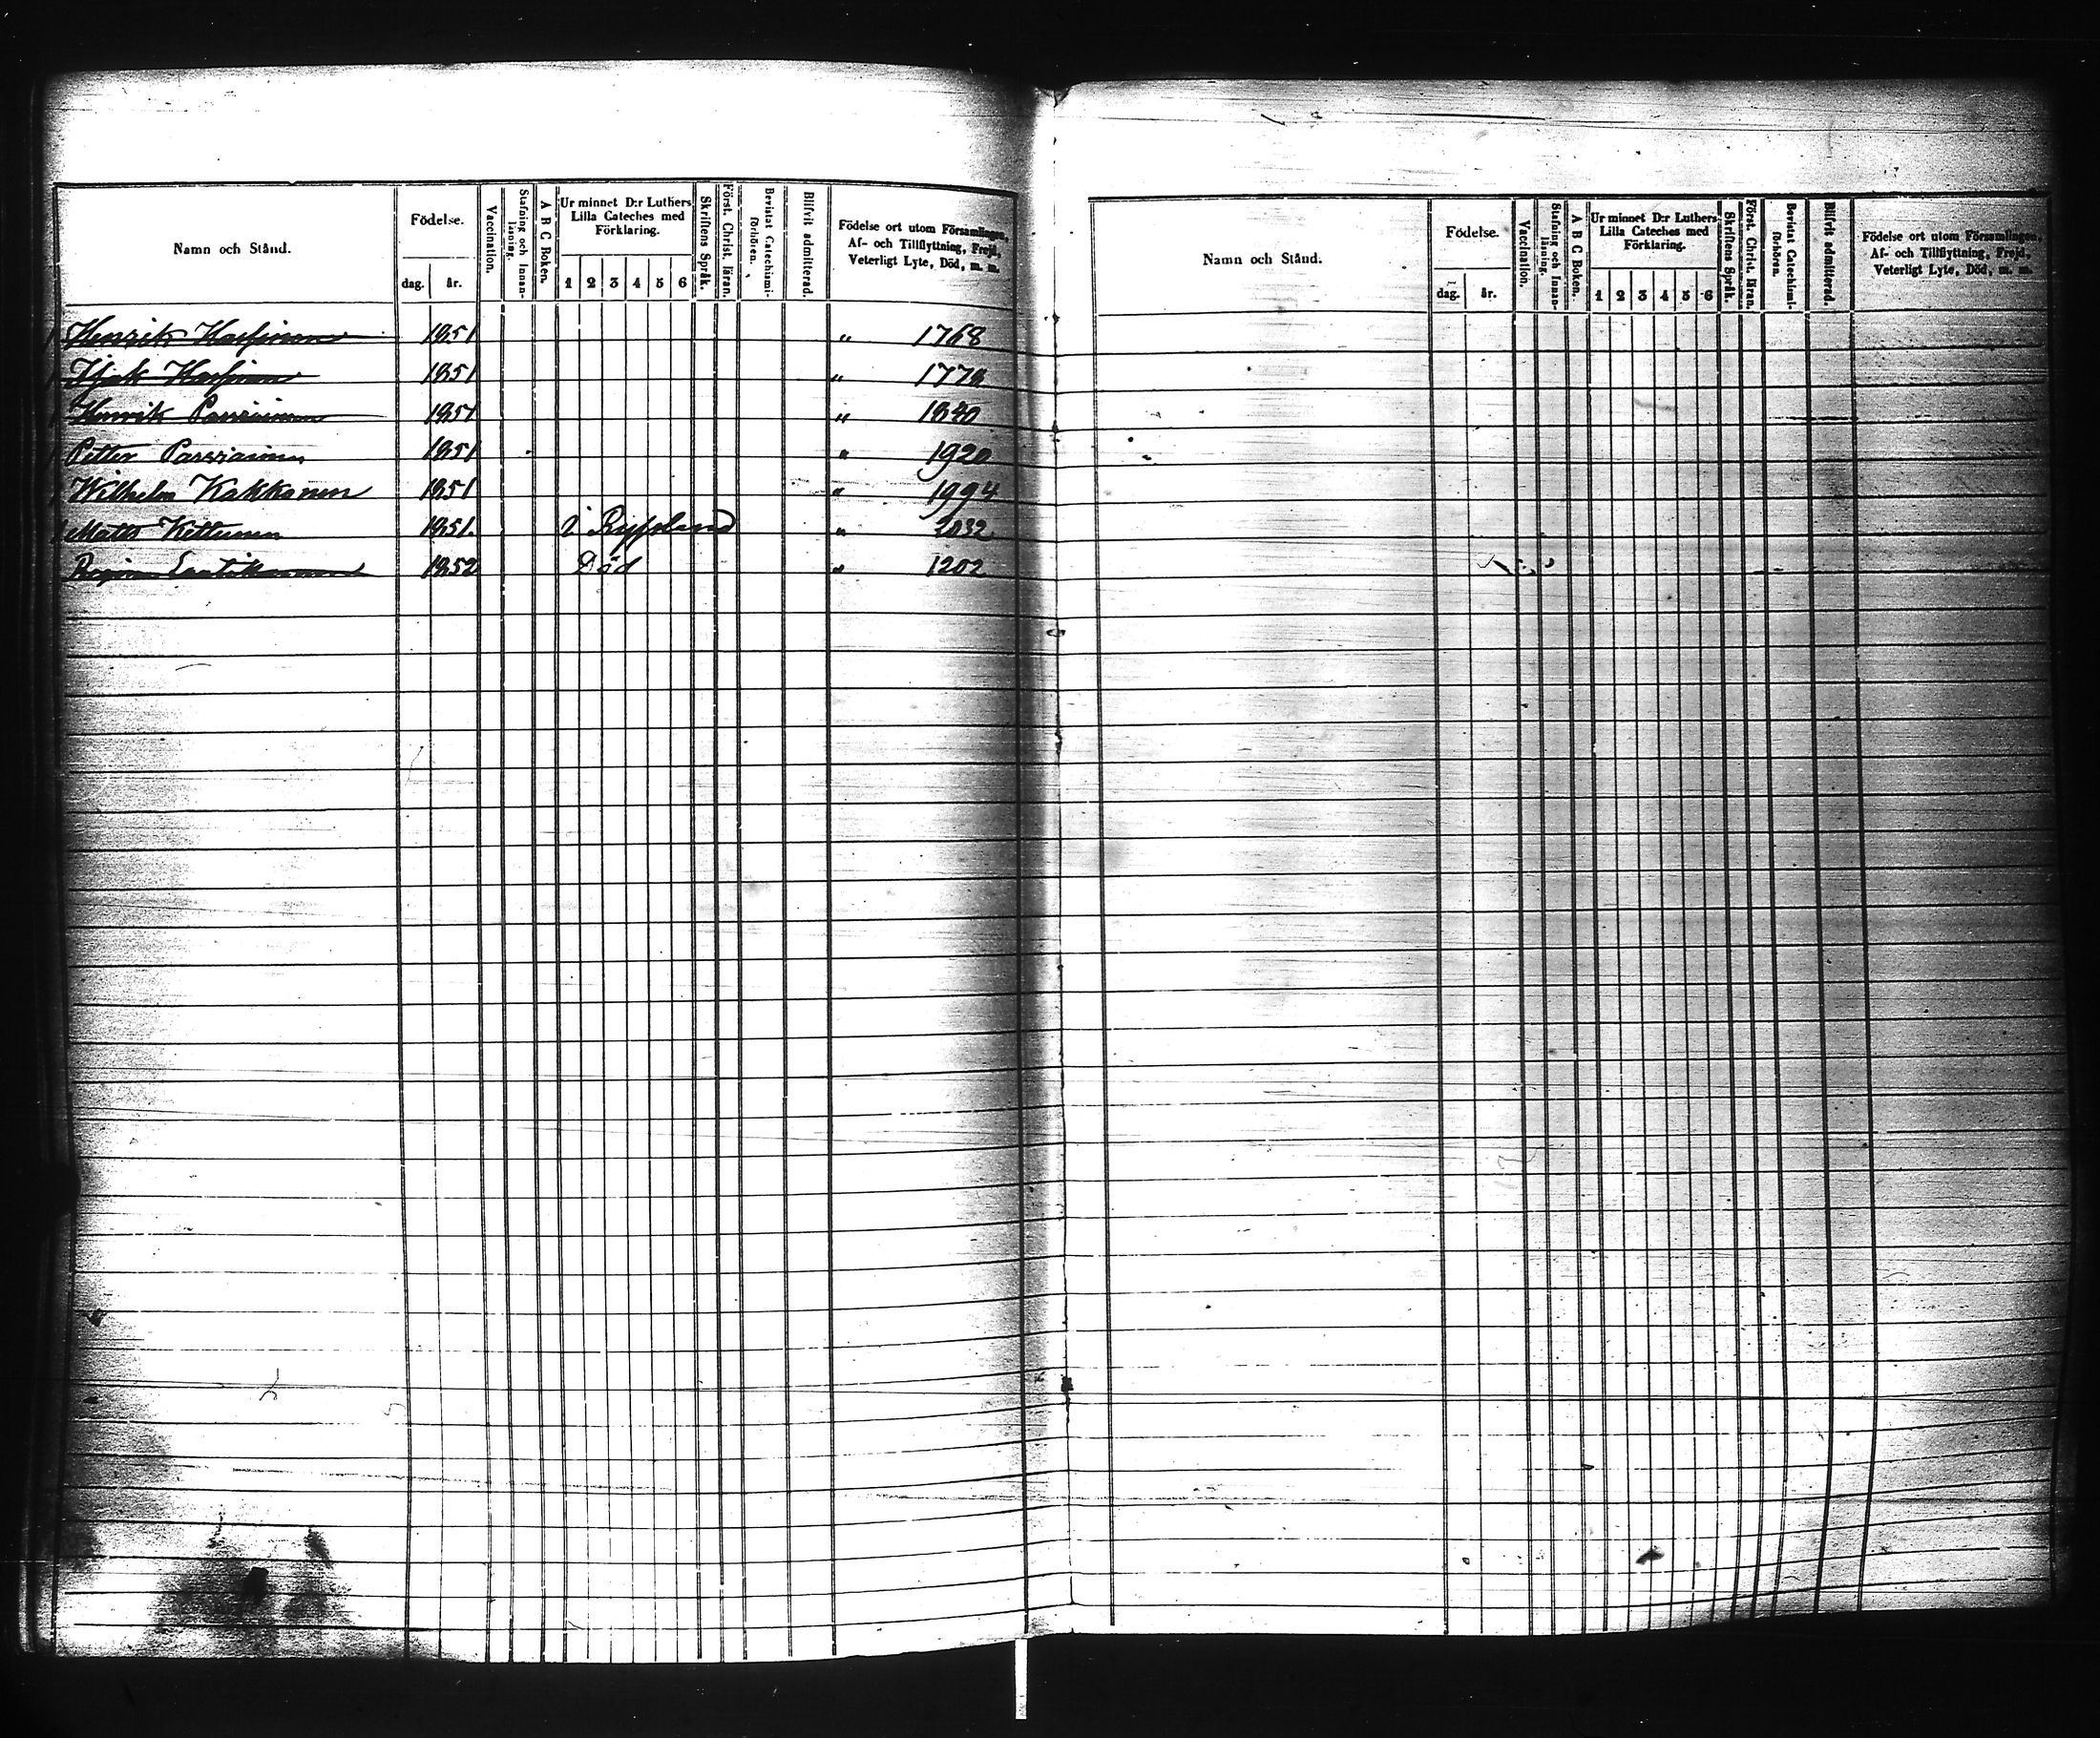 Namn och Stånd.
Födelse.
dag. år.
Vaccination.
Stafning och Innan-
läsning.
A B C Boken.
Ur minnet D:r Luthers
Lilla Cateches med
Förklaring.
1 2 3 4 5 6
Skriftens Språk.
Först. Christ. läran.
Bevistat Catechismi-
förhören.
Blifvit admitterad.
Födelse ort utom Församlingen,
Af- och Tillflyttning, Frejd,
Veterligt Lyte, Död, m. m.
Henrik 1851 " 1768
1851 " 1778
Henrik Parviainen 1851 " 1840
Petter Parviainen 1851 " 1920
Wilhelm Kakkonen 1851 " 1994
Matts Kettunen 1851. i Ryssland " 2032
1852 Död " 1202
Namn och Stånd.
Födelse.
dag. år.
Vaccination.
Stafning och Innan-
läsning.
A B C Boken.
Ur minnet D:r Luthers
Lilla Cateches med
Förklaring.
1 2 3 4 5 6
Skriftens Språk.
Först. Christ. läran.
Bevistat Catechismi-
förhören.
Blifvit admitterad.
Födelse ort utom Församlingen,
Af- och Tillflyttning, Frejd,
Veterligt Lyte, Död, m. m.